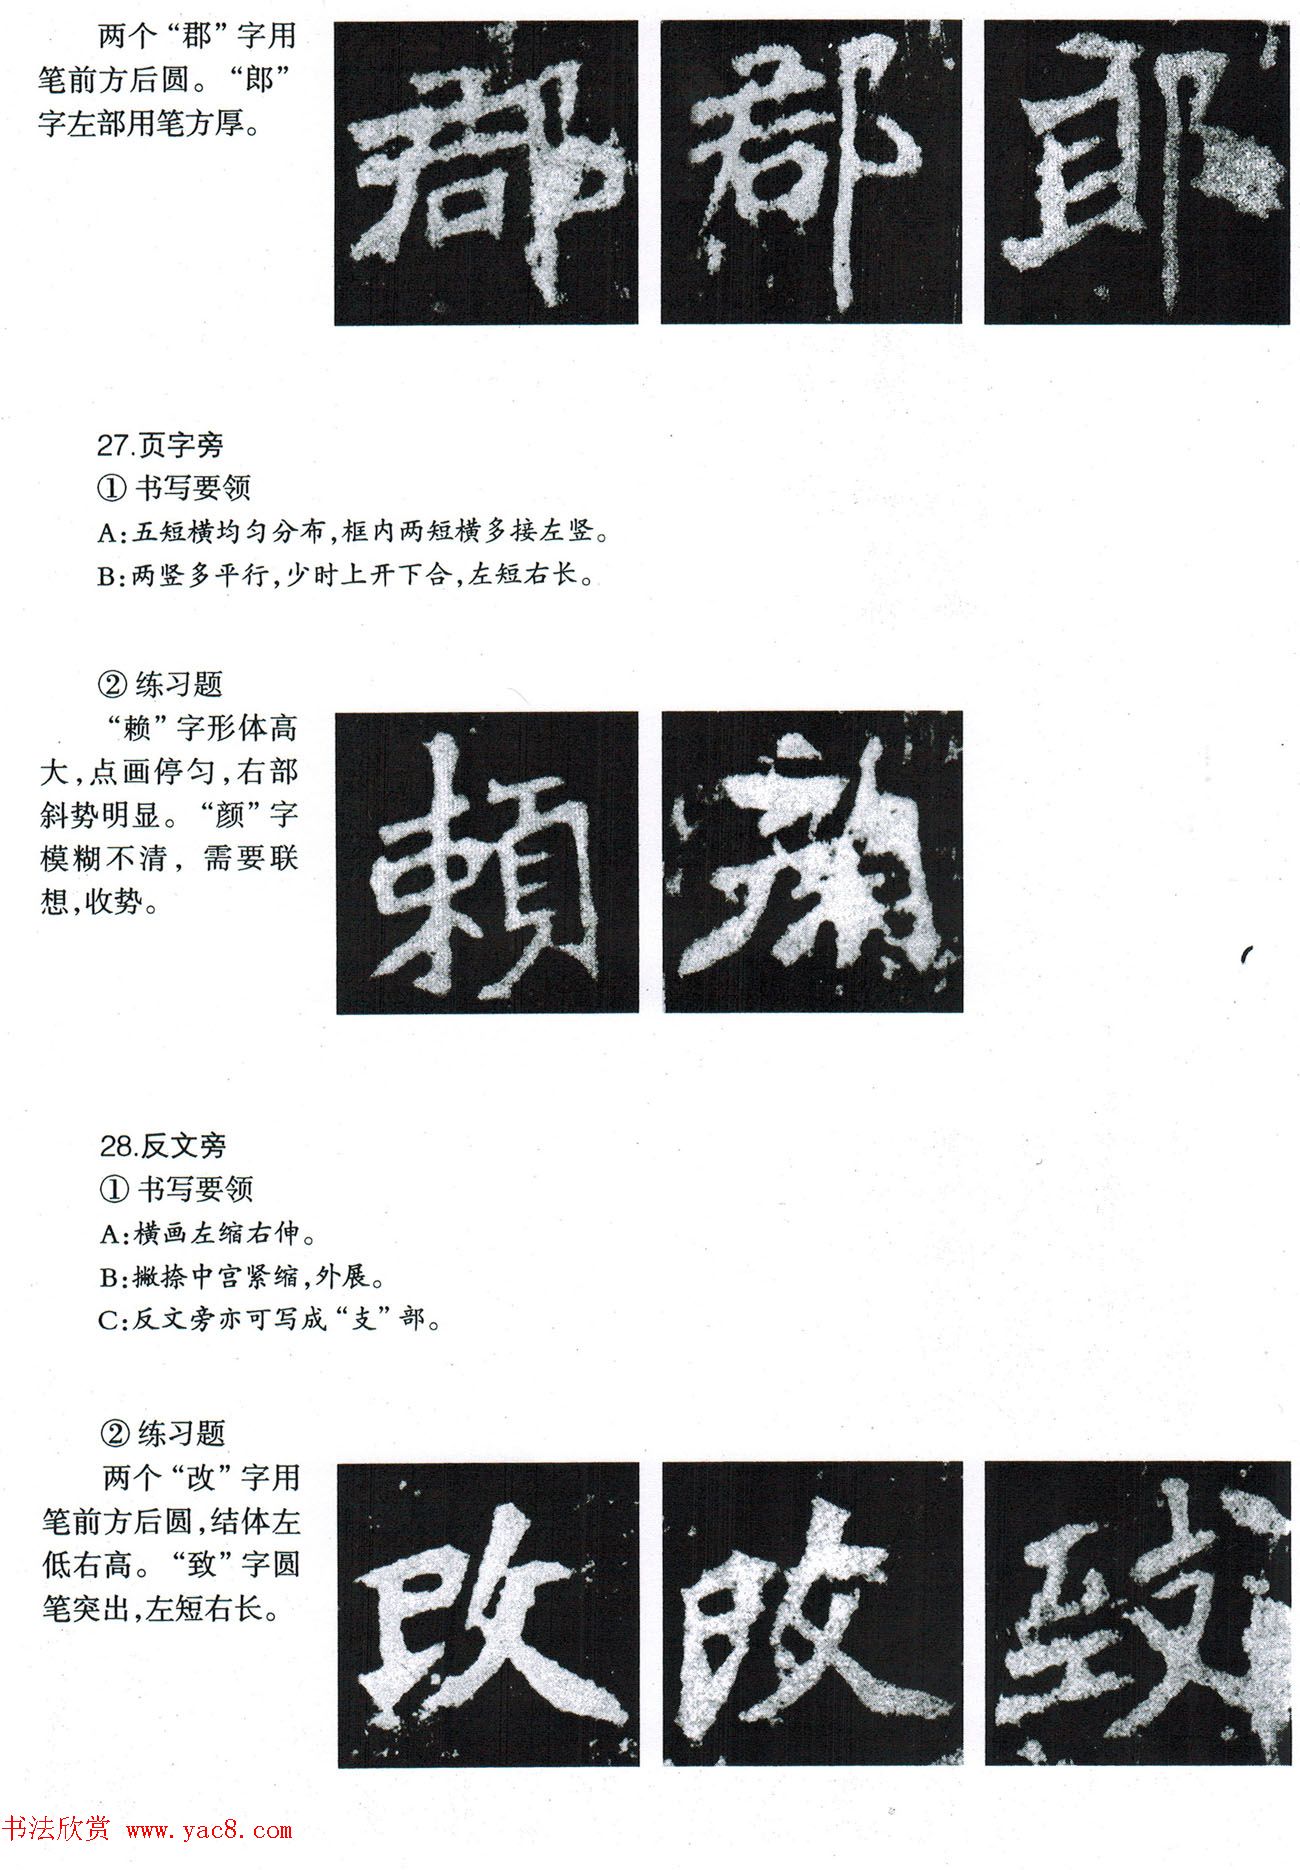 两个“郡”字用
笔前方后圆。“郎”
字左部用笔方厚。
郡 郡 郎
27.页字旁
① 书写要领
A:五短横均匀分布,框内两短横多接左竖。
B:两竖多平行,少时上开下合,左短右长。
② 练习题
“赖”字形体高
大,点画停匀,右部
斜势明显。“颜”字
模糊不清,需要联
想,收势。
賴 顏
28.反文旁
① 书写要领
A:横画左缩右伸。
B:撇捺中宫紧缩,外展。
C:反文旁亦可写成“支”部。
② 练习题
两个“改”字用
笔前方后圆,结体左
低右高。“致”字圆
笔突出,左短右长。
改 改 致
书法欣赏 www.yac8.com